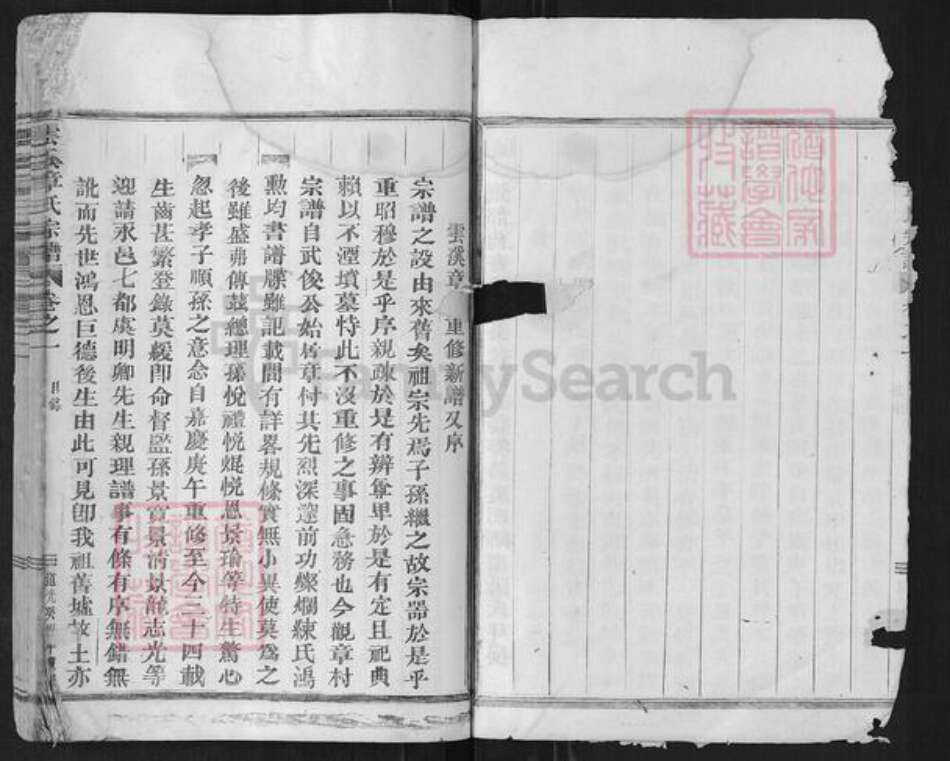 雲溪章 重修新譜又序
宗譜之設由來舊矣祖宗先焉子孫繼之故宗器於是乎
重昭穆於是乎序親疎於是有辨尊卑於是有定且祀典
賴以不湮墳墓恃此不沒重修之事固急務也今觀章村
宗譜自武俊公始居章村其先烈深邃前功燦爛練氏鴻
勲均書譜牒雖記載間有詳畧規條實無小異使莫為之
後雖盛弗傳茲總理孫悅禮悅焜悅恩景瑜等特生驚心
忽起孝子順孫之意念自嘉慶庚午重修至今二十四載
生齒甚繁登錄莫緩卽命督監孫景 景清景 志光等
迎請永邑七都虞明卿先生親理譜事有條有序無錯無
訛而先世鴻恩巨德後生由此可見卽我祖舊墟故土亦
章氏宗譜 卷之一
目錄
收藏 譜學會
FamilySearch